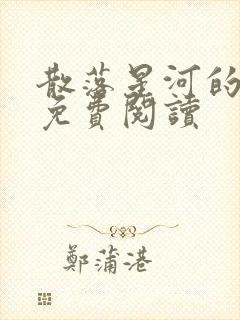 散落星河的
免費閱讀
鄭蒲港